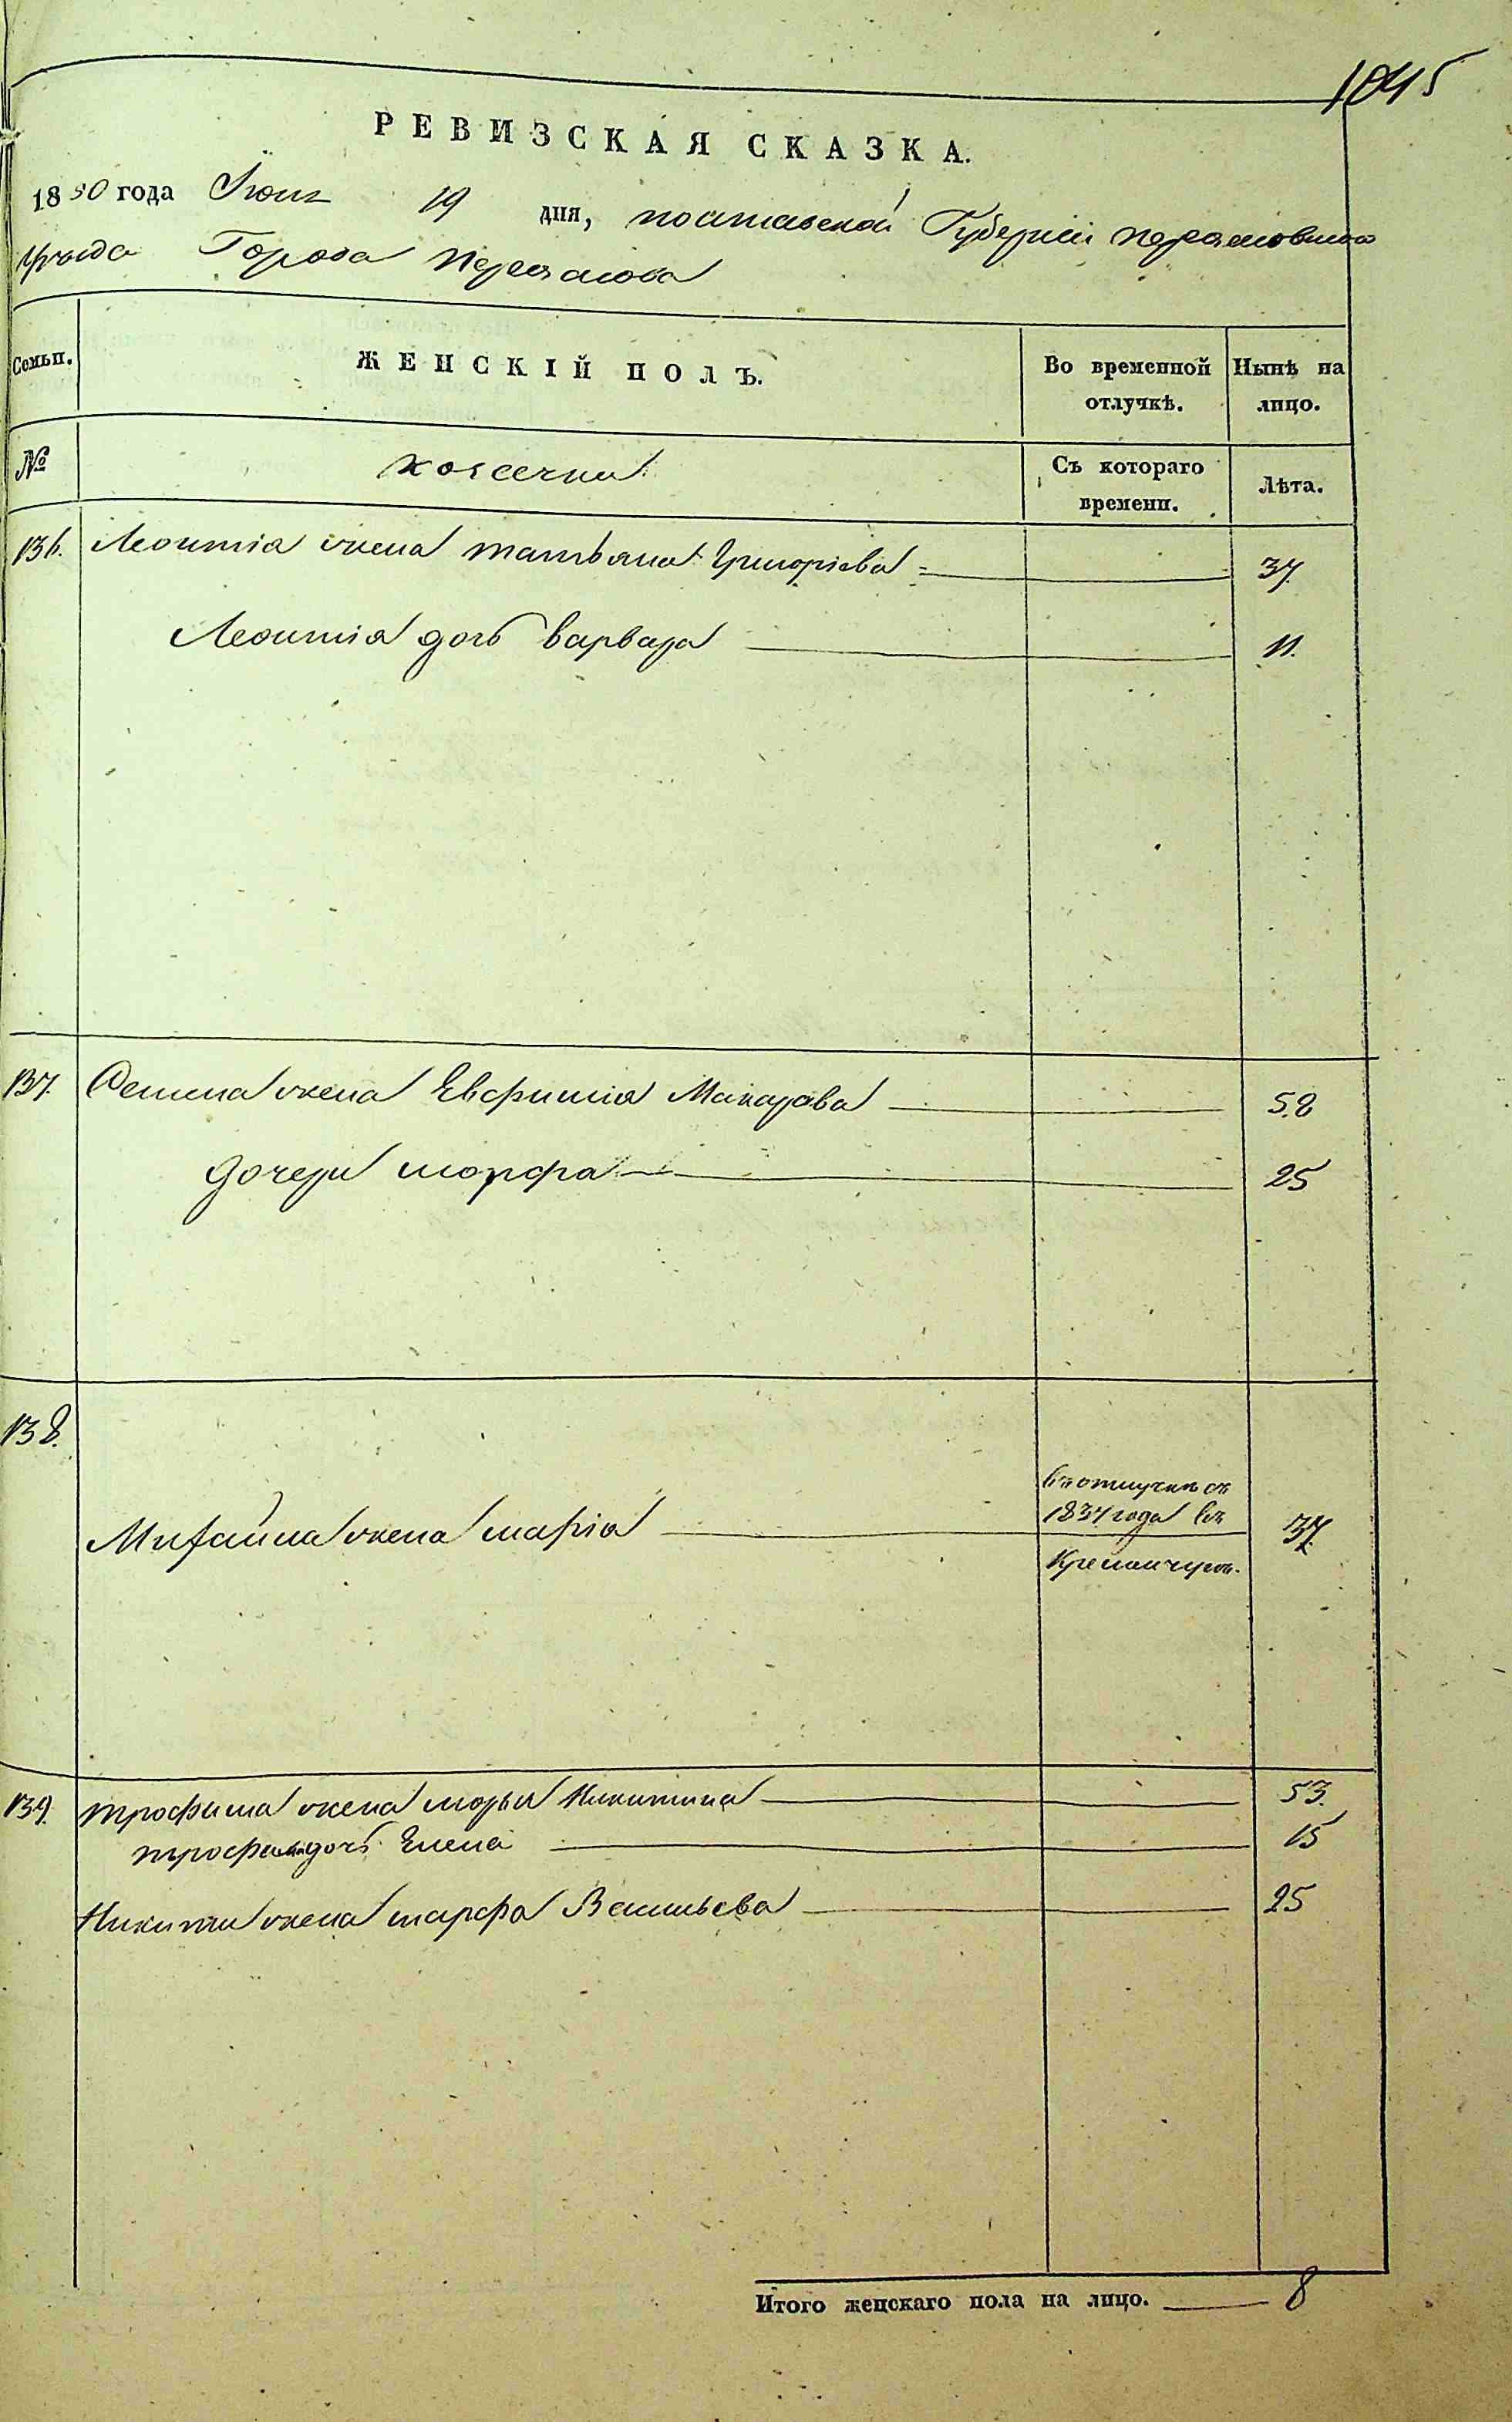 1045
РЕВИЗСКАЯ СКАЗКА.
1850 года Іюня 19 дня, полтавской Губерніи переяславскаго
уѣзда Города переяслова
Семьи. ЖЕНСКІЙ ПОЛЪ. Во временной отлучкѣ. Нынѣ на лицо.
№ козачки Съ котораго времени. Лѣта.
136. Леонтія жена татьяна Григоріева 37.
Леонтія дочь варвара 11.
137. Семена жена Евфимія Макарова 58
дочери марфа 25
138.
въ отлучкѣ съ
1834 года въ
Михайла жена марія 37.
Кременчугѣ.
139. трофима жена марья Никитина 53.
трофима дочь Елена 15
Никиты жена марфа Васильева 25
Итого женскаго пола на лицо. 8